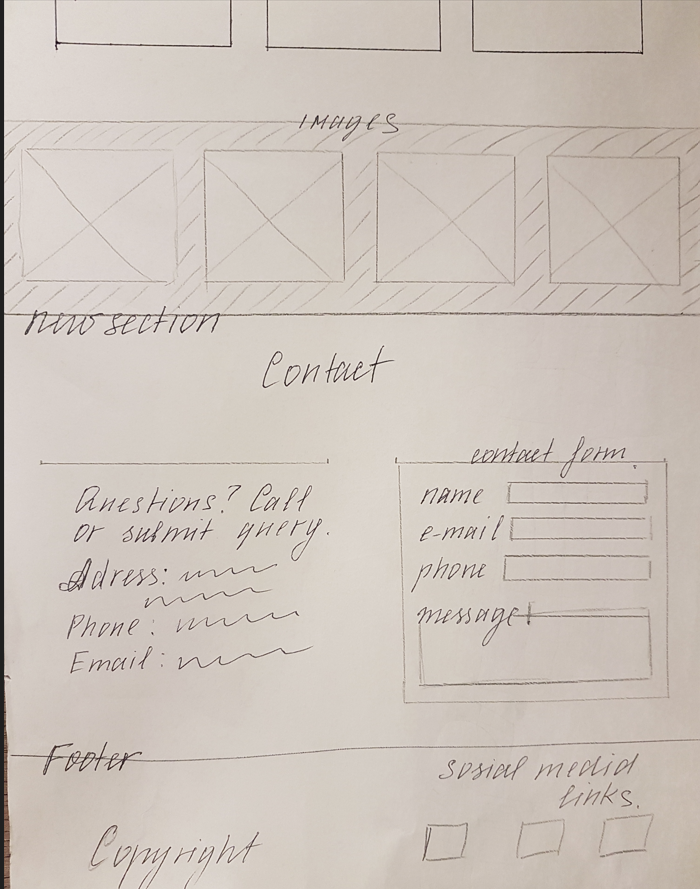 images
new section
Contact
Questions? Call
or submit query.
Adress:
Phone:
Email:
contact form.
name
e-mail
phone
message
Footer
sosial media
links.
Copyright